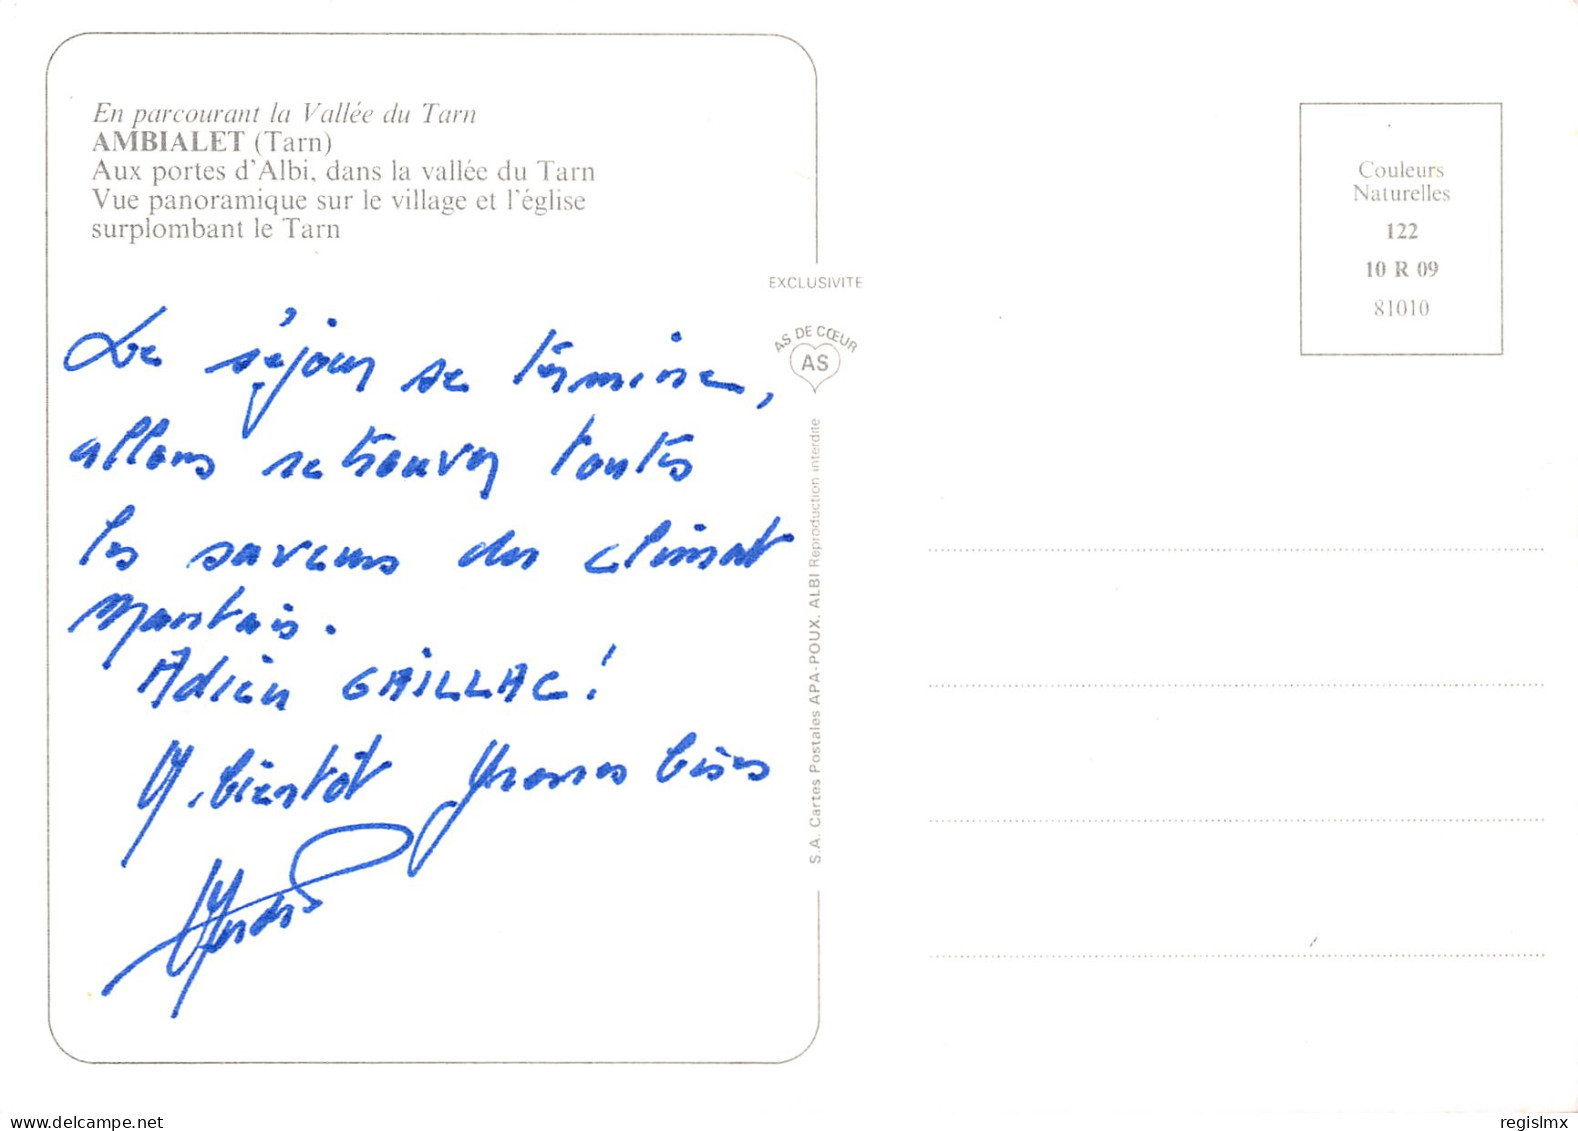 En parcourant la Vallée du Tarn
AMBIALET (Tarn)
Aux portes d'Albi, dans la vallée du Tarn
Vue panoramique sur le village et l'église
surplombant le Tarn
Le séjour se termine,
allons retrouver toutes
les saveurs du climat
Nantais.
Adieu GAILLAC !
A bientôt grosses bises
EXCLUSIVITE
AS DE CŒUR
AS
S.A. Cartes Postales APA-POUX, ALBI Reproduction interdite
Couleurs
Naturelles
122
10 R 09
81010
delcampe.net
regislmx